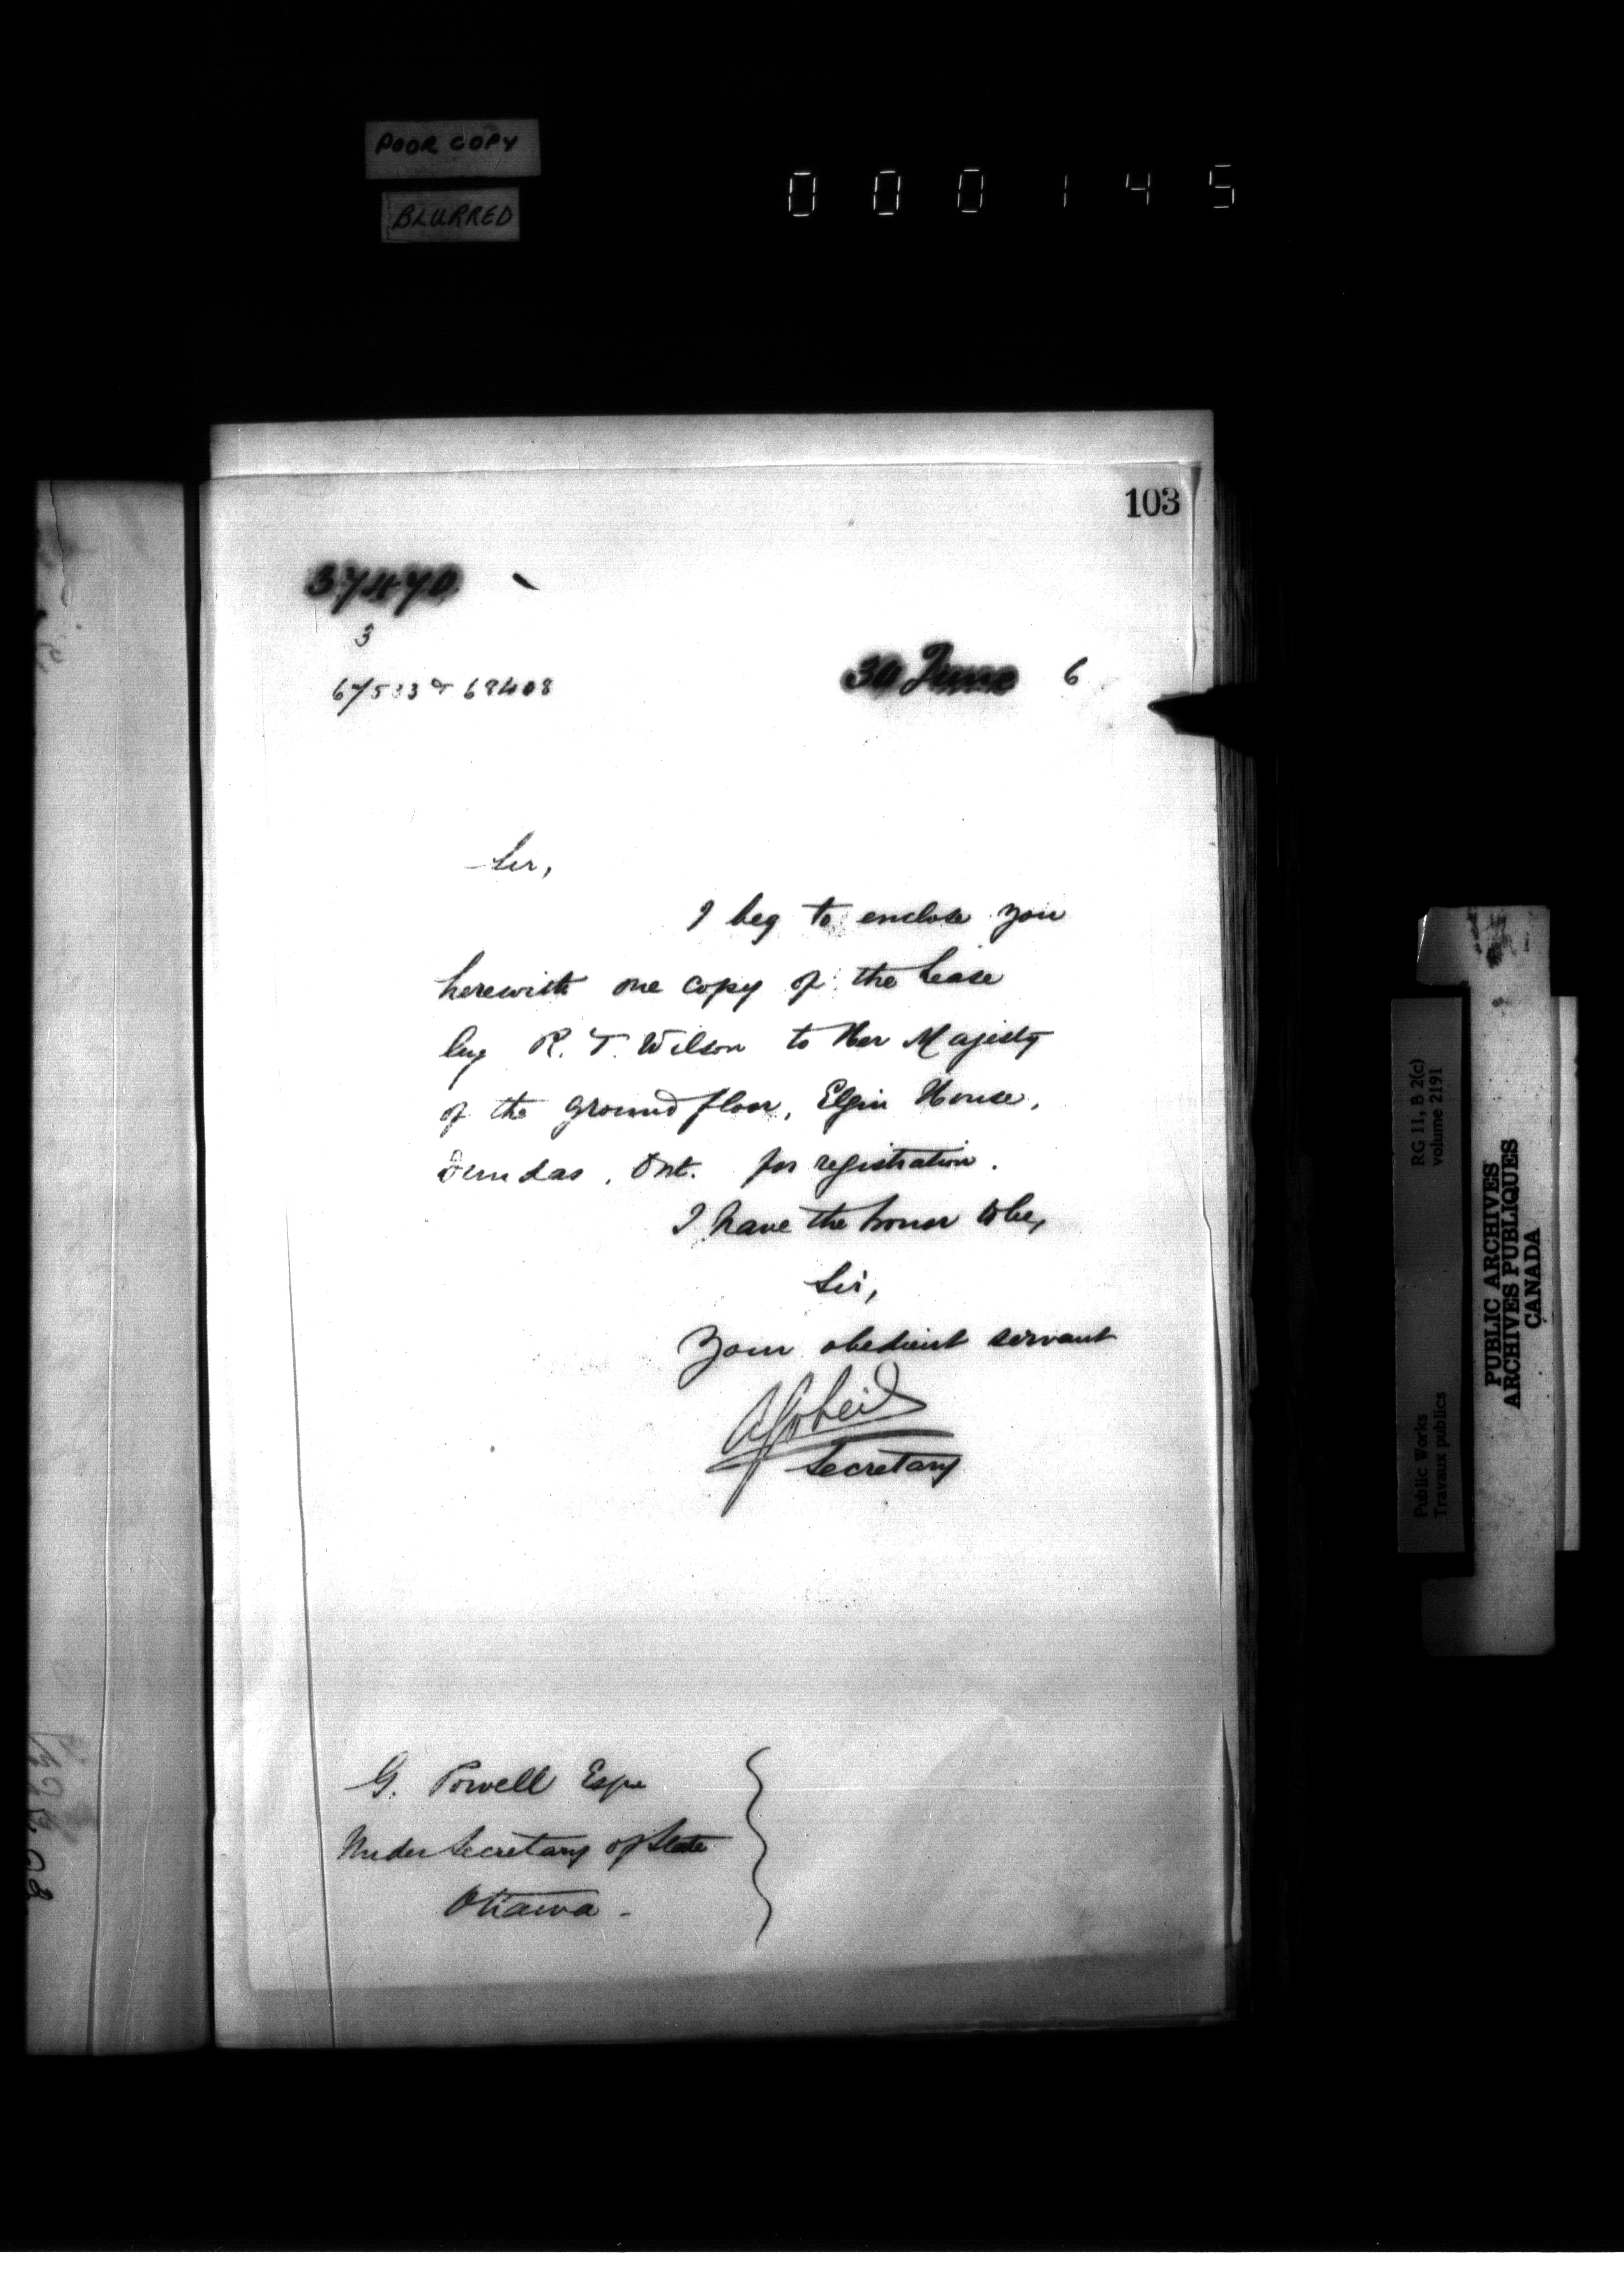 POOR COPY
BLURRED
000145
103
37470
3
& 69408
30 June 6
Sir,
I beg to enclose you
herewith one copy of the Lease
by R. T. Wilson to Her Majesty
of the ground floor, Elgin House,
Dundas, Ont. for registration.
I have the honor to be,
Sir,
Your obedient servant
AGobeil
Secretary
G. Powell Esqre
Under Secretary of State
Ottawa -
RG 11, B 2(c)
volume 2191
Public Works
Travaux publics
PUBLIC ARCHIVES
ARCHIVES PUBLIQUES
CANADA